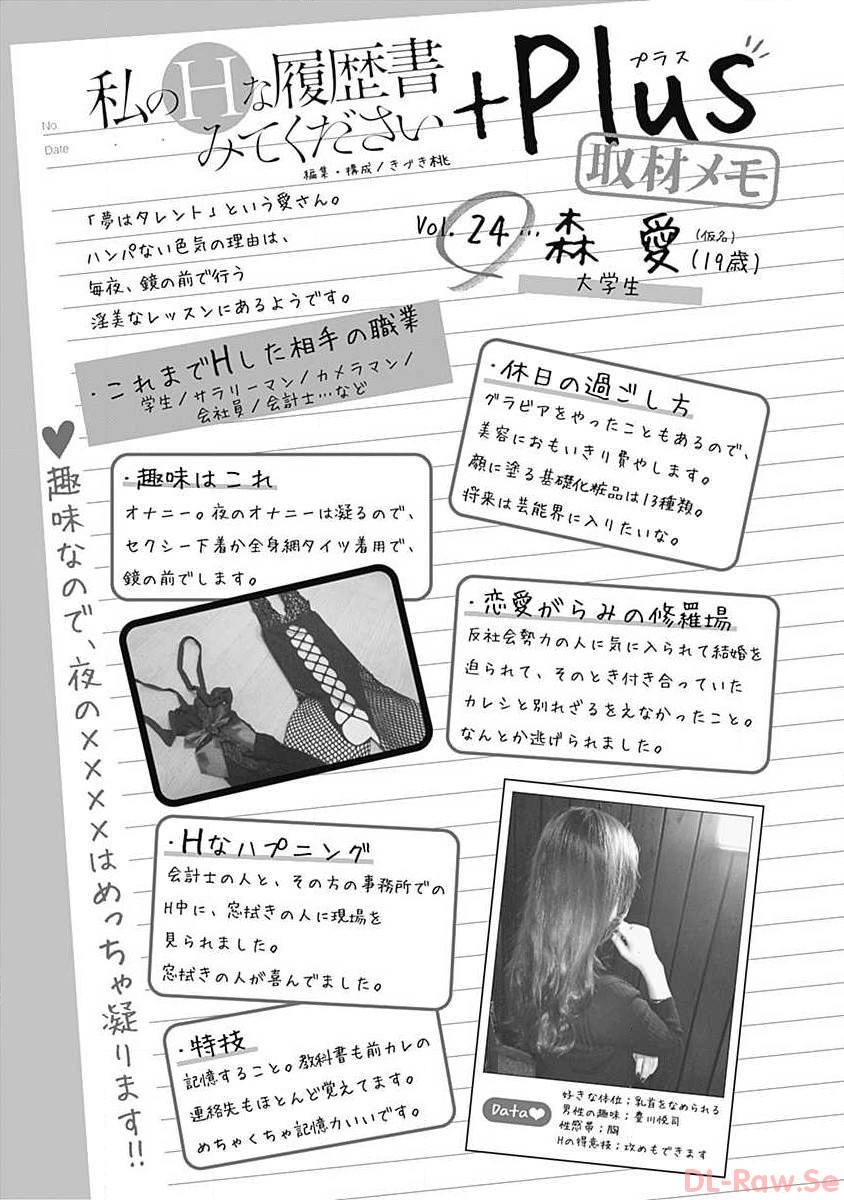 No.
Date
私のHな履歴書
みてください
+Plus
プラス
取材メモ
編集・構成/きづき桃
「夢はタレント」という愛さん。
ハンパない色気の理由は、
毎夜、鏡の前で行う
淫美なレッスンにあるようです。
Vol.24…森 愛(仮名)(19歳)
大学生
・これまでHした相手の職業
学生/サラリーマン/カメラマン/
会社員/会計士…など
・休日の過ごし方
グラビアをやったこともあるので、
美容におもいきり費やします。
顔に塗る基礎化粧品は13種類。
将来は芸能界に入りたいな。
♥趣味なので、夜の××××はめっちゃ凝ります!!
・趣味はこれ
オナニー。夜のオナニーは凝るので、
セクシー下着か全身網タイツ着用で、
鏡の前でします。
・恋愛がらみの修羅場
反社会勢力の人に気に入られて結婚を
迫られて、そのとき付き合っていた
カレシと別れざるをえなかったこと。
なんとか逃げられました。
・Hなハプニング
会計士の人と、その方の事務所での
H中に、窓拭きの人に現場を
見られました。
窓拭きの人が喜んでました。
・特技
記憶すること。教科書も前カレの
連絡先もほとんど覚えてます。
めちゃくちゃ記憶力いいです。
Data♥
好きな体位;乳首をなめられる
男性の趣味;豊川悦司
性感帯;胸
Hの得意技;攻めもできます
DL-Raw.Se